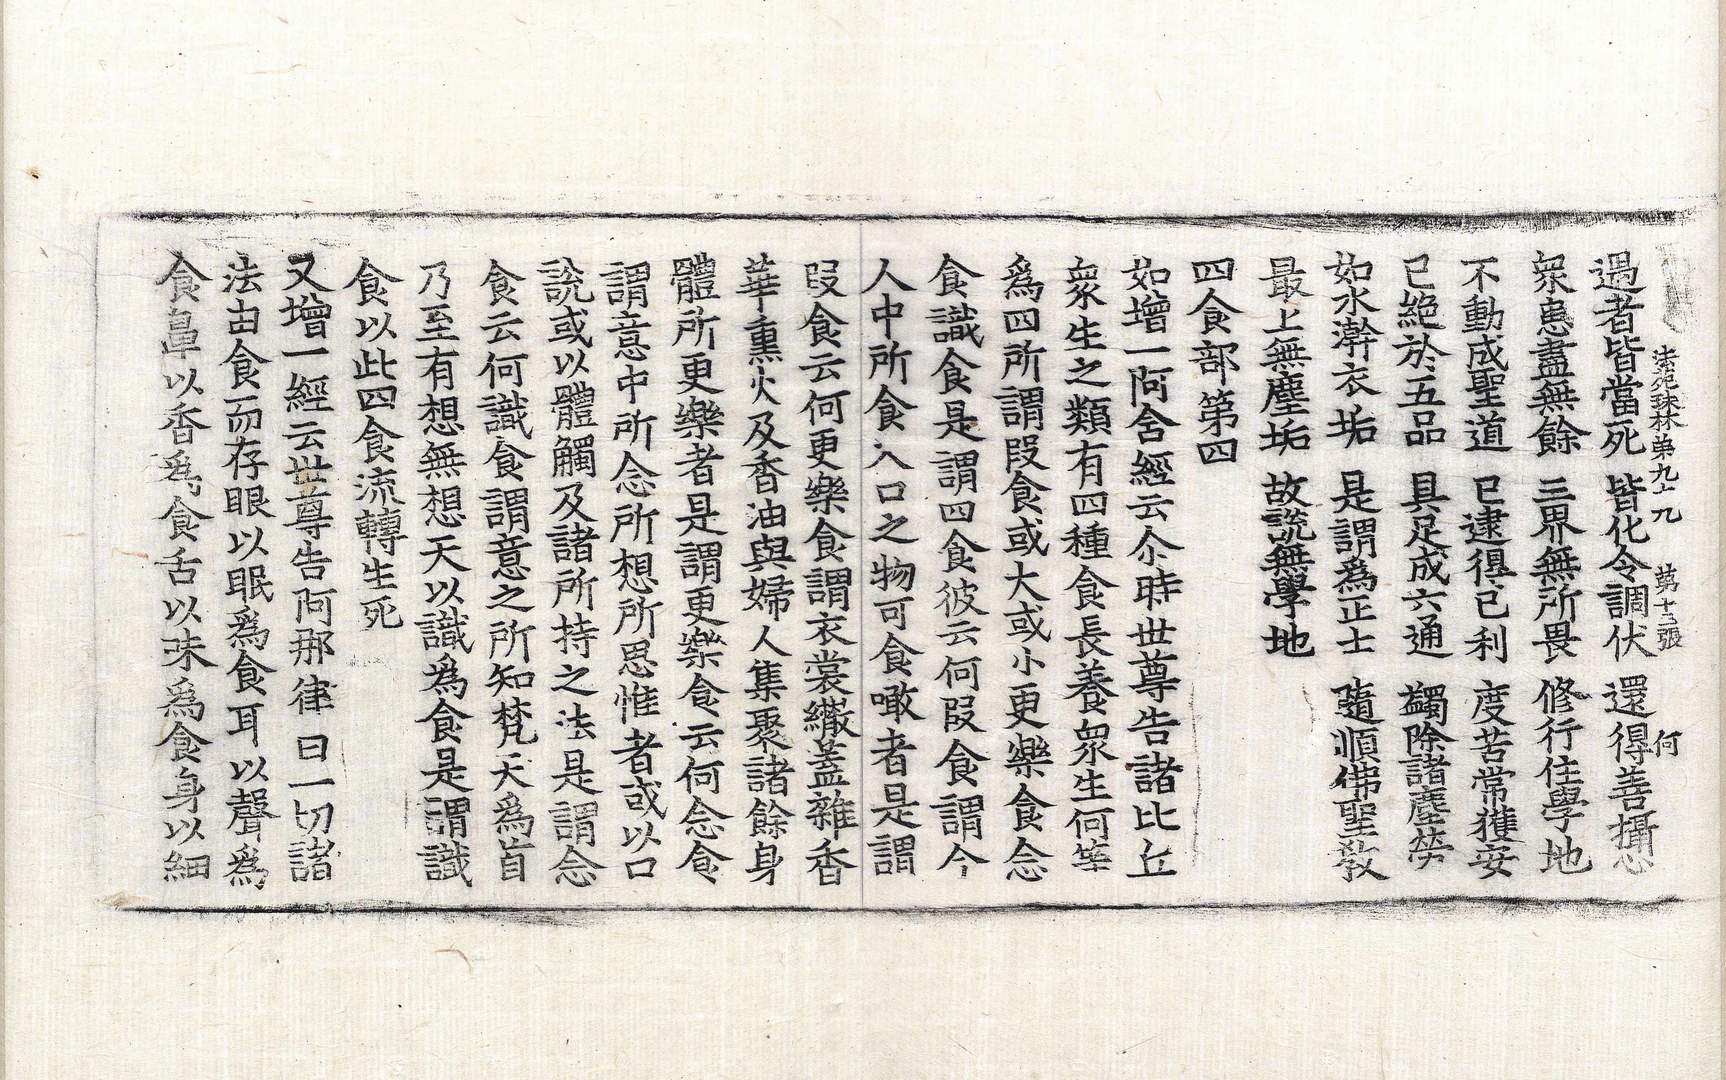 法苑珠林第九十九 第十三張 何
過者皆當死 皆化令調伏 還得善攝心
衆患盡無餘 三界無所畏 修行住學地
不動成聖道 已逮得己利 度苦常獲安
已絶於五品 具足成六通 蠲除諸塵勞
如水澣衣垢 是謂爲正士 隨順佛聖敎
最上無塵垢 故說無學地
四食部第四
如增一阿含經云尒時世尊告諸比丘
衆生之類有四種食長養衆生何等
爲四所謂段食或大或小更樂食念
食識食是謂四食彼云何段食謂今
人中所食入口之物可食噉者是謂
段食云何更樂食謂衣裳繖蓋雜香
華熏火及香油與婦人集聚諸餘身
體所更樂者是謂更樂食云何念食
謂意中所念所想所思惟者或以口
說或以體觸及諸所持之法是謂念
食云何識食謂意之所知梵天爲首
乃至有想無想天以識爲食是謂識
食以此四食流轉生死
又增一經云世尊告阿那律曰一切諸
法由食而存眼以眠爲食耳以聲爲
食鼻以香爲食舌以味爲食身以細